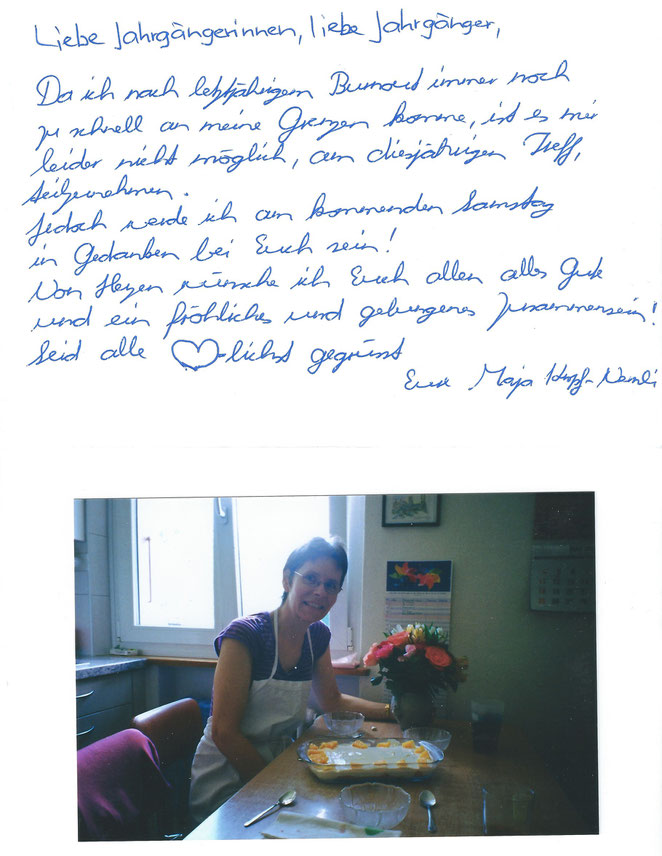 Liebe Jahrgängerinnen, liebe Jahrgänger,
Da ich nach letztjährigem Burnout immer noch
zu schnell an meine Grenzen komme, ist es mir
leider nicht möglich, am diesjährigen Treff,
teilzunehmen.
Jedoch werde ich am kommenden Samstag
in Gedanken bei Euch sein!
Von Herzen wünsche ich Euch allen alles Gute
und ein fröhliches und gelungenes Zusammensein!
Seid alle ♡-lichst gegrüsst
Eure Maja